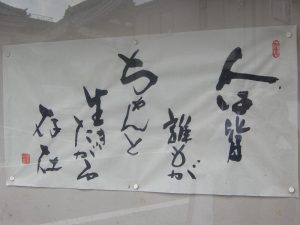 人は皆
誰もが
ちゃんと
生きたがる
存在